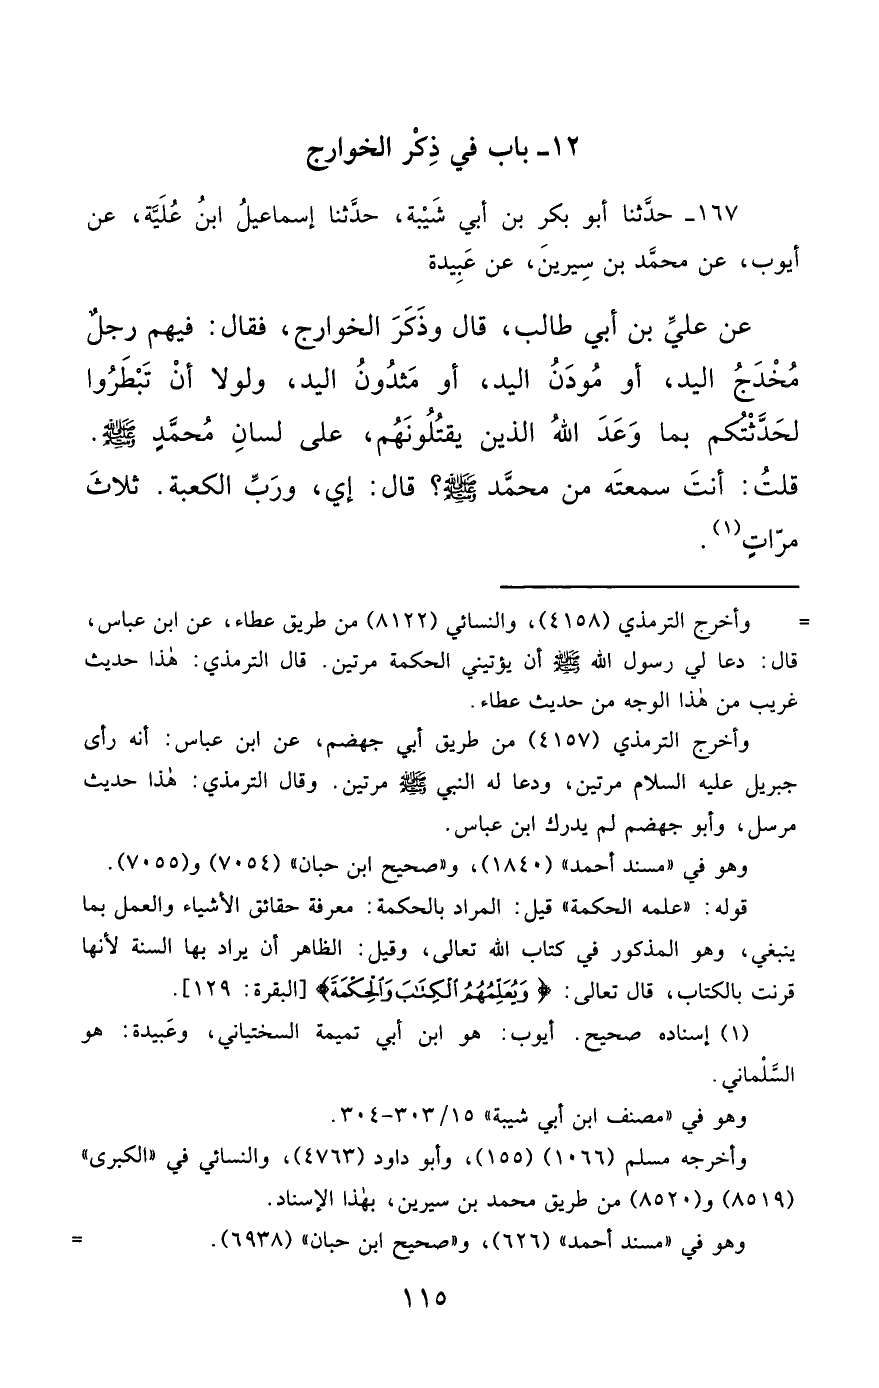 ١٢- باب في ذِكْر الخوارج
١٦٧- حدَّثنا أبو بكر بن أبي شَيْبة، حدَّثنا إسماعيلُ ابنُ عُلَيَّة، عن
أيوب، عن محمَّد بن سِيرينَ، عن عَبِيدة
عن عليِّ بن أبي طالب، قال وذَكَرَ الخوارج، فقال: فيهم رجلٌ
مُخْدَجُ اليد، أو مُودَنُ اليد، أو مَثدُونُ اليد، ولولا أنْ تَبْطَرُوا
لحَدَّثْتُكم بما وَعَدَ اللهُ الذين يقتُلُونَهُم، على لسانِ مُحمَّدٍ ﷺ.
قلتُ: أنتَ سمعتَه من محمَّد ﷺ؟ قال: إي، ورَبِّ الكعبة. ثلاثَ
مرّاتٍ(١).
= وأخرج الترمذي (٤١٥٨)، والنسائي (٨١٢٢) من طريق عطاء، عن ابن عباس،
قال: دعا لي رسول الله ﷺ أن يؤتيني الحكمة مرتين. قال الترمذي: هٰذا حديث
غريب من هٰذا الوجه من حديث عطاء.
وأخرج الترمذي (٤١٥٧) من طريق أبي جهضم، عن ابن عباس: أنه رأى
جبريل عليه السلام مرتين، ودعا له النبي ﷺ مرتين. وقال الترمذي: هٰذا حديث
مرسل، وأبو جهضم لم يدرك ابن عباس.
وهو في «مسند أحمد» (١٨٤٠)، و«صحيح ابن حبان» (٧٠٥٤) و(٧٠٥٥).
قوله: «علمه الحكمة» قيل: المراد بالحكمة: معرفة حقائق الأشياء والعمل بما
ينبغي، وهو المذكور في كتاب الله تعالى، وقيل: الظاهر أن يراد بها السنة لأنها
قرنت بالكتاب، قال تعالى: ﴿وَيُعَلِّمُهُمُ ٱلْكِتَٰبَ وَٱلْحِكْمَةَ﴾ [البقرة: ١٢٩].
(١) إسناده صحيح. أيوب: هو ابن أبي تميمة السختياني، وعَبيدة: هو
السَّلْماني.
وهو في «مصنف ابن أبي شيبة» ١٥/ ٣٠٣-٣٠٤.
وأخرجه مسلم (١٠٦٦) (١٥٥)، وأبو داود (٤٧٦٣)، والنسائي في «الكبرى»
(٨٥١٩) و(٨٥٢٠) من طريق محمد بن سيرين، بهٰذا الإسناد.
وهو في «مسند أحمد» (٦٢٦)، و«صحيح ابن حبان» (٦٩٣٨). =
١١٥